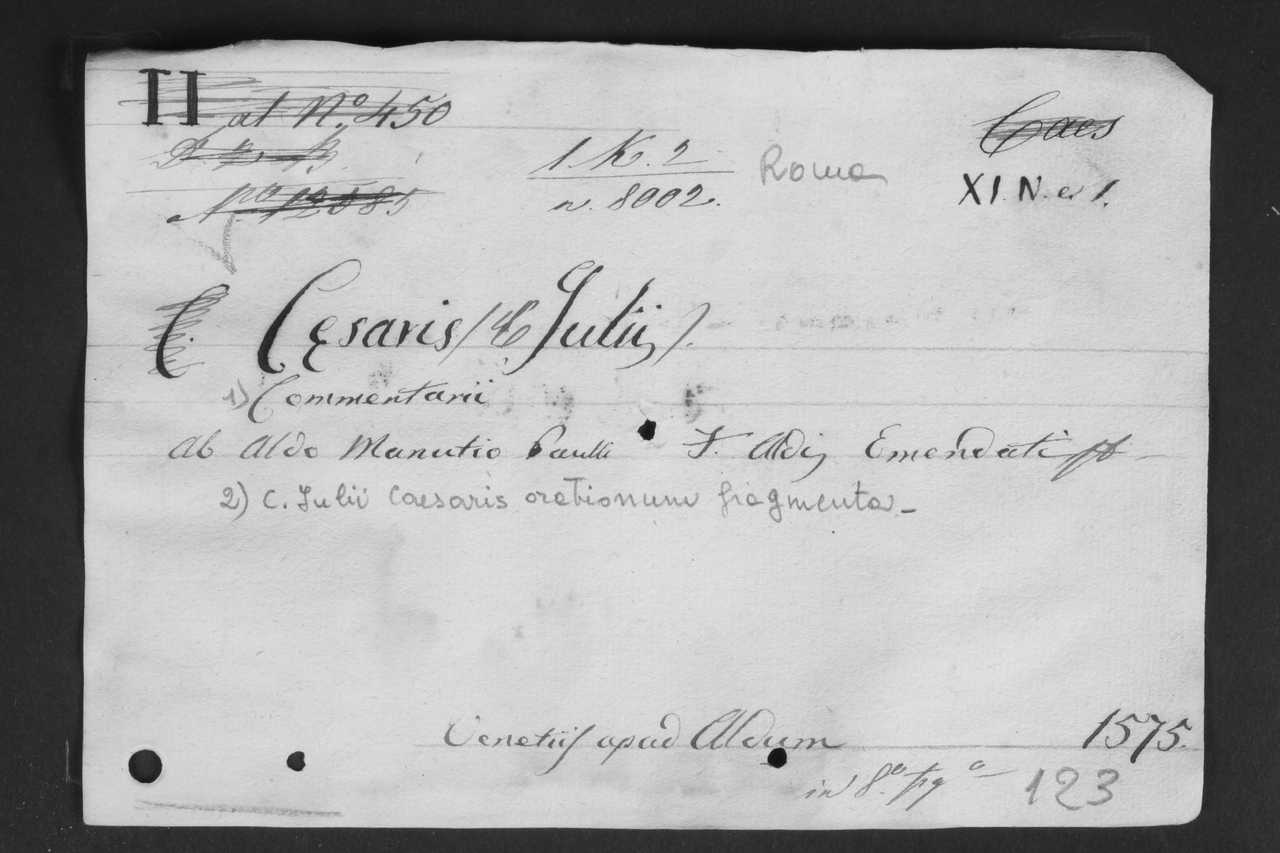 II
al N.º 450
1. K. 2
n. 8002.
Roma
Caes
XI. N. e. 1.
C. Cęsaris (C Julii).
1) Commentarii
Ab Aldo Manutio Paulli F. Aldi Emendati
2) C. Julii Caesaris orationum fragmenta_
Venetiis apud Aldum 1575.
in 8.º
123